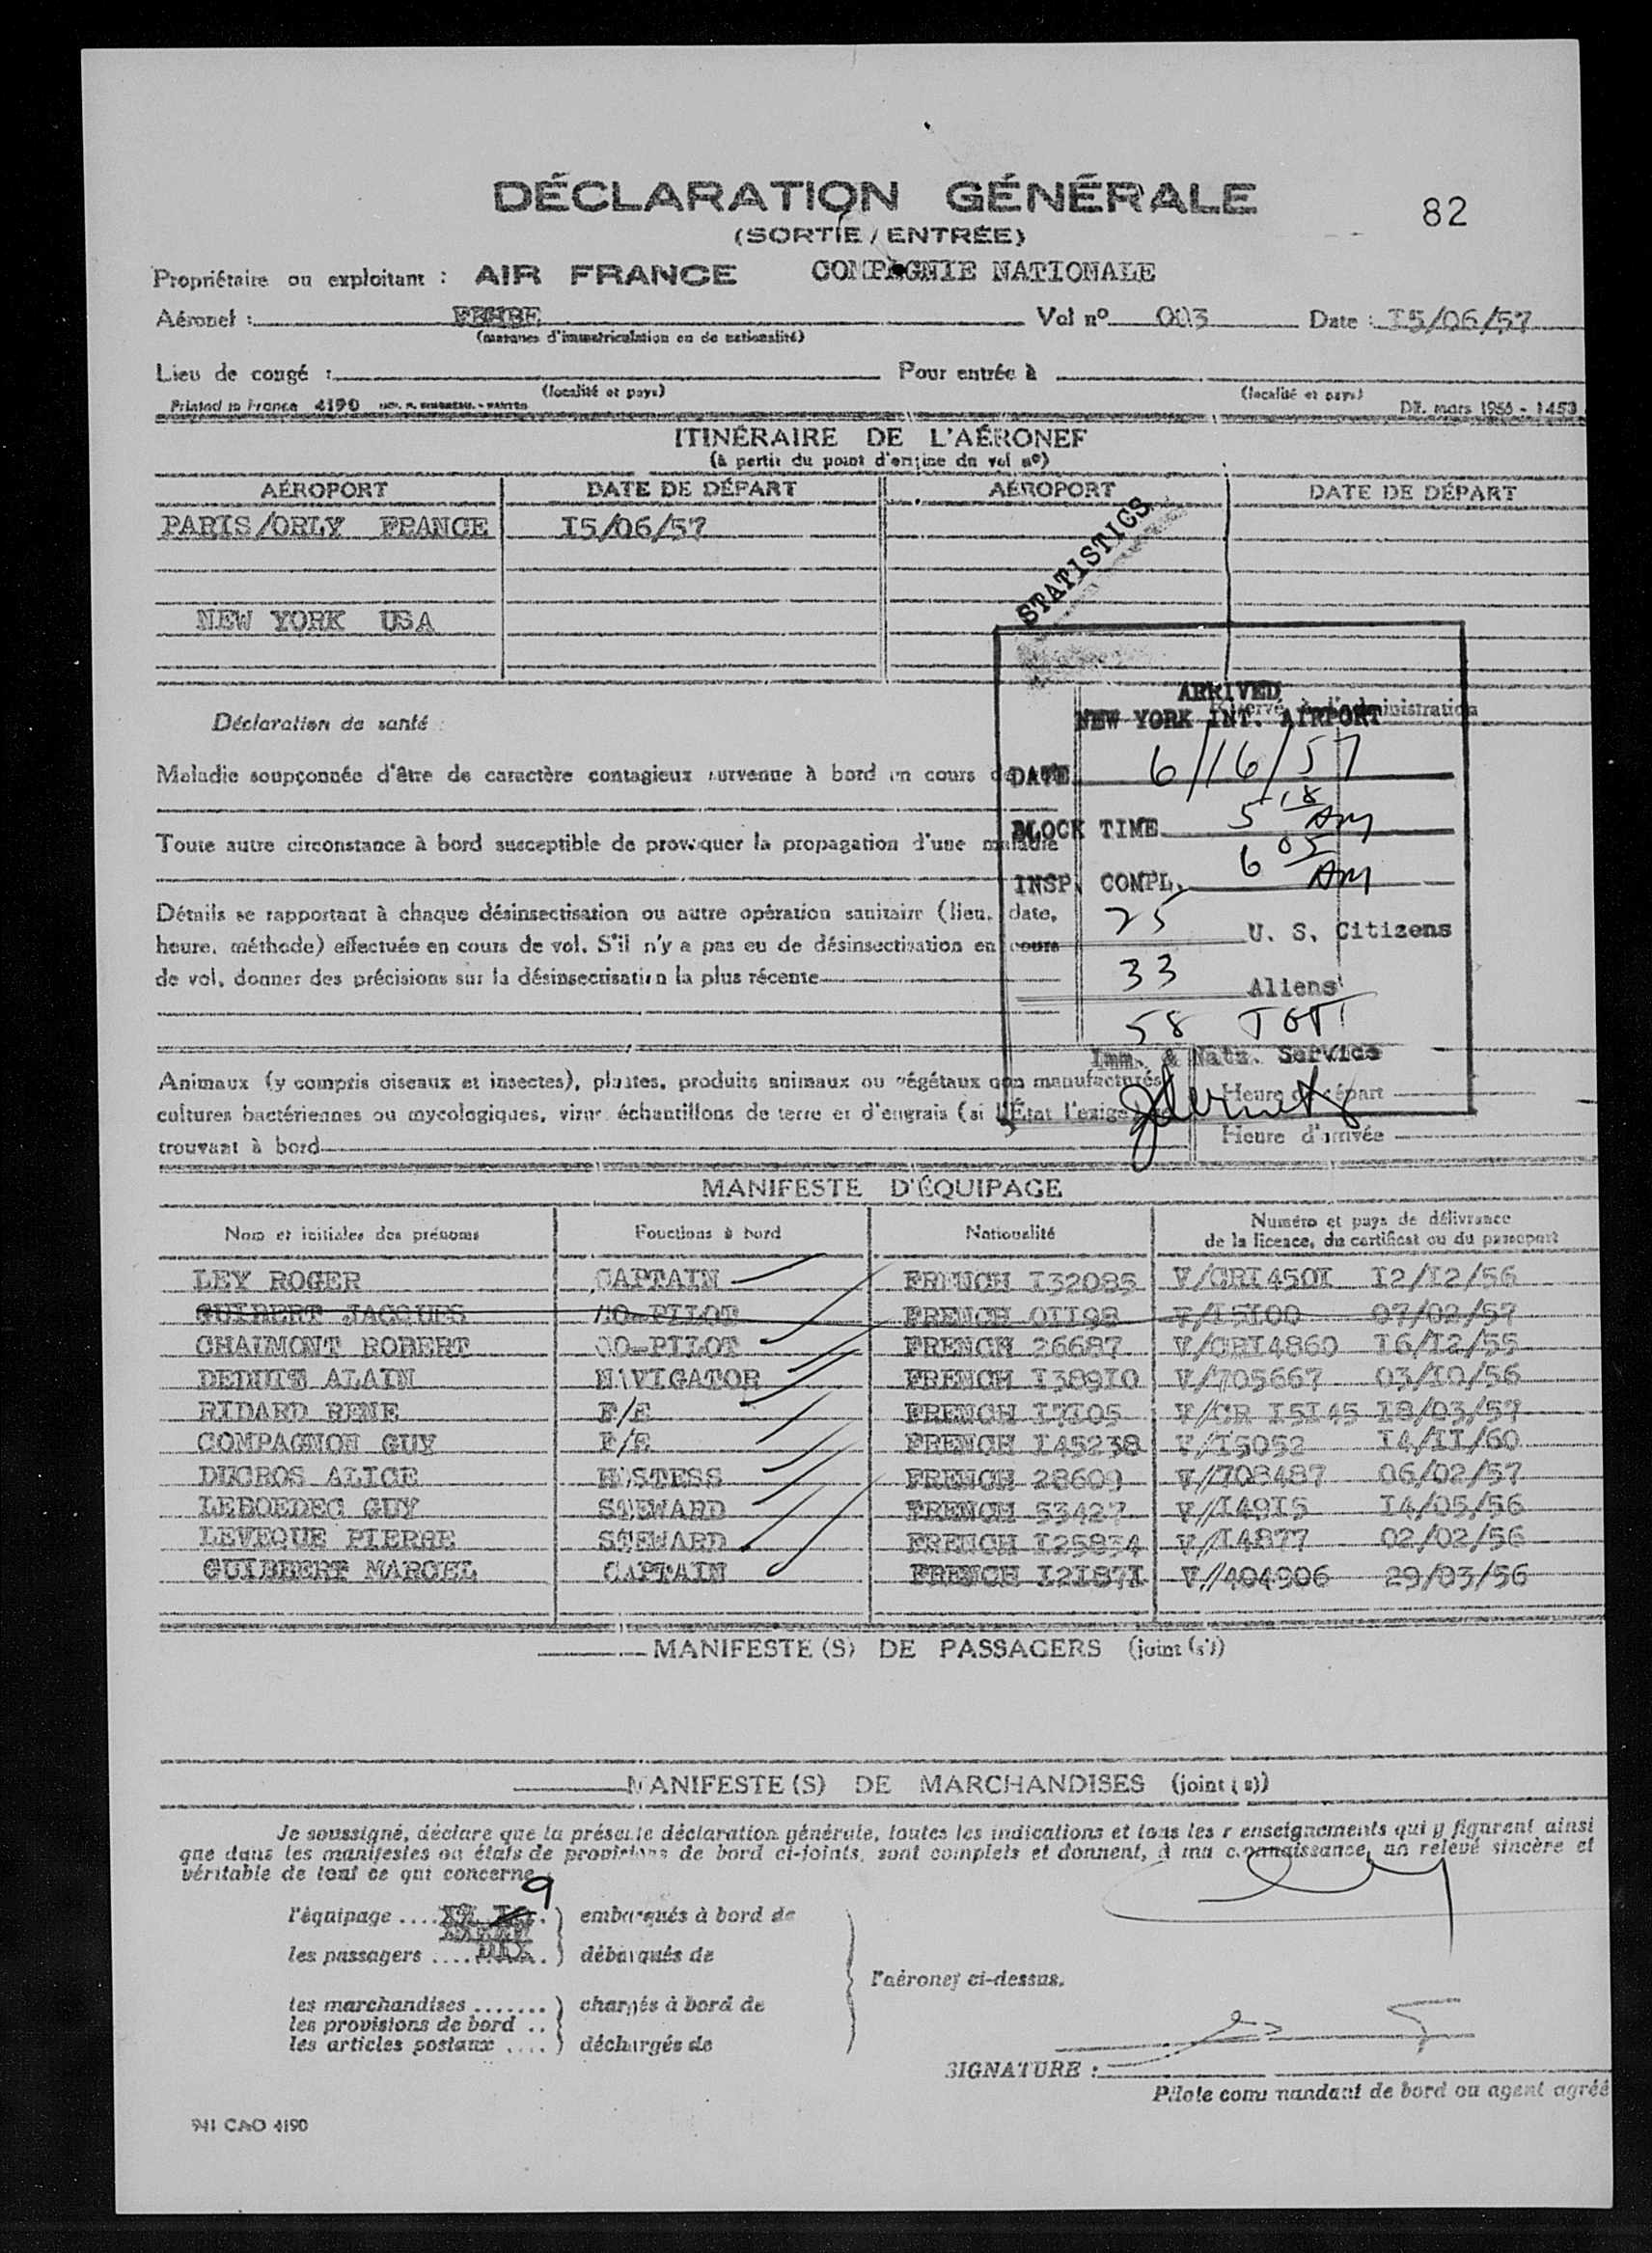 DÉCLARATION GÉNÉRALE
82
(SORTIE / ENTRÉE)
Propriétaire ou exploitant : AIR FRANCE COMPAGNIE NATIONALE
Aéronef : Vol nº 003 Date : I5/06/57
(marques d'immatriculation ou de nationalité)
Lieu de congé : Pour entrée à
(localité et pays) (localité et pays)
Printed in France 4190 Dt. mars 1956 - 1453
ITINÉRAIRE DE L'AÉRONEF
(à partir du point d'origine du vol nº)
AÉROPORT DATE DE DÉPART AÉROPORT DATE DE DÉPART
PARIS/ORLY FRANCE I5/06/57
STATISTICS
NEW YORK USA
ARRIVED
NEW YORK INT. AIRPORT
Réservé à l'administration
Déclaration de santé :
DATE 6/16/57
Maladie soupçonnée d'être de caractère contagieux survenue à bord en cours de
BLOCK TIME 5 18 AM
Toute autre circonstance à bord susceptible de provoquer la propagation d'une maladie
INSP. COMPL. 6 05 AM
Détails se rapportant à chaque désinsectisation ou autre opération sanitaire (lieu, date,
25 U. S. Citizens
heure, méthode) effectuée en cours de vol. S'il n'y a pas eu de désinsectisation en cours
33 Aliens
de vol, donner des précisions sur la désinsectisation la plus récente
58 TOT
Imm. & Natz. Service
Animaux (y compris oiseaux et insectes), plantes, produits animaux ou végétaux non manufacturés
Heure de départ
cultures bactériennes ou mycologiques, virus échantillons de terre et d'engrais (si l'État l'exige) se
Heure d'arrivée
trouvant à bord
MANIFESTE D'ÉQUIPAGE
Nom et initiales des prénoms Fonctions à bord Nationalité Numéro et pays de délivrance
de la licence, du certificat ou du passeport
LEY ROGER CAPTAIN FRENCH I32085 V/CRI450I I2/I2/56
GUIBERT JACQUES CO-PILOT FRENCH 0II98 V/I5I00 07/02/57
CHAUMONT ROBERT CO-PILOT FRENCH 26687 V/CRI4860 I6/I2/55
ALAIN NAVIGATOR FRENCH I389I0 V/705667 03/I0/56
RIDARD RENE F/E FRENCH I7I05 V/CR I5I45 I8/03/57
COMPAGNON GUY F/E FRENCH I45238 V/I5052 I4/II/60
DUCROS ALICE HOSTESS FRENCH 28609 V/708487 06/02/57
LEBOEDEC GUY STEWARD FRENCH 53427 V/I49I5 I4/05/56
LEVEQUE PIERRE STEWARD FRENCH I25834 V/I4877 02/02/56
GUIBBERT MARCEL CAPTAIN FRENCH I2I87I V//404906 29/03/56
MANIFESTE (S) DE PASSAGERS (joint (s))
MANIFESTE (S) DE MARCHANDISES (joint (s))
Je soussigné, déclare que la présente déclaration générale, toutes les indications et tous les renseignements qui y figurent ainsi
que dans les manifestes ou états de provisions de bord ci-joints, sont complets et donnent, à ma connaissance, un relevé sincère et
véritable de tout ce qui concerne :
9
l'équipage .... embarqués à bord de
les passagers .... débarqués de
l'aéronef ci-dessus.
les marchandises ....... chargés à bord de
les provisions de bord ..
les articles postaux .... déchargés de
SIGNATURE :
Pilote commandant de bord ou agent agréé
941 CAO 4190